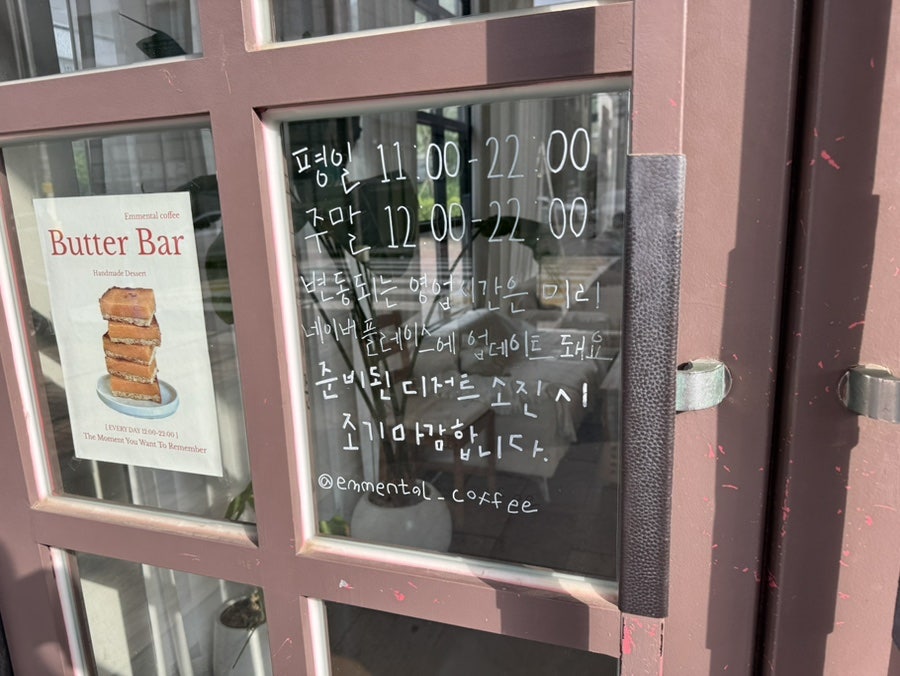 Emmental coffee
Butter Bar
Handmade Dessert
[ EVERY DAY 12:00-22:00 ]
The Moment You Want To Remember
평일 11:00-22:00
주말 12:00-22:00
변동되는 영업시간은 미리!
네이버플레이스에 업데이트 돼요
준비된 디저트 소진 시
조기마감합니다.
@emmental_coffee